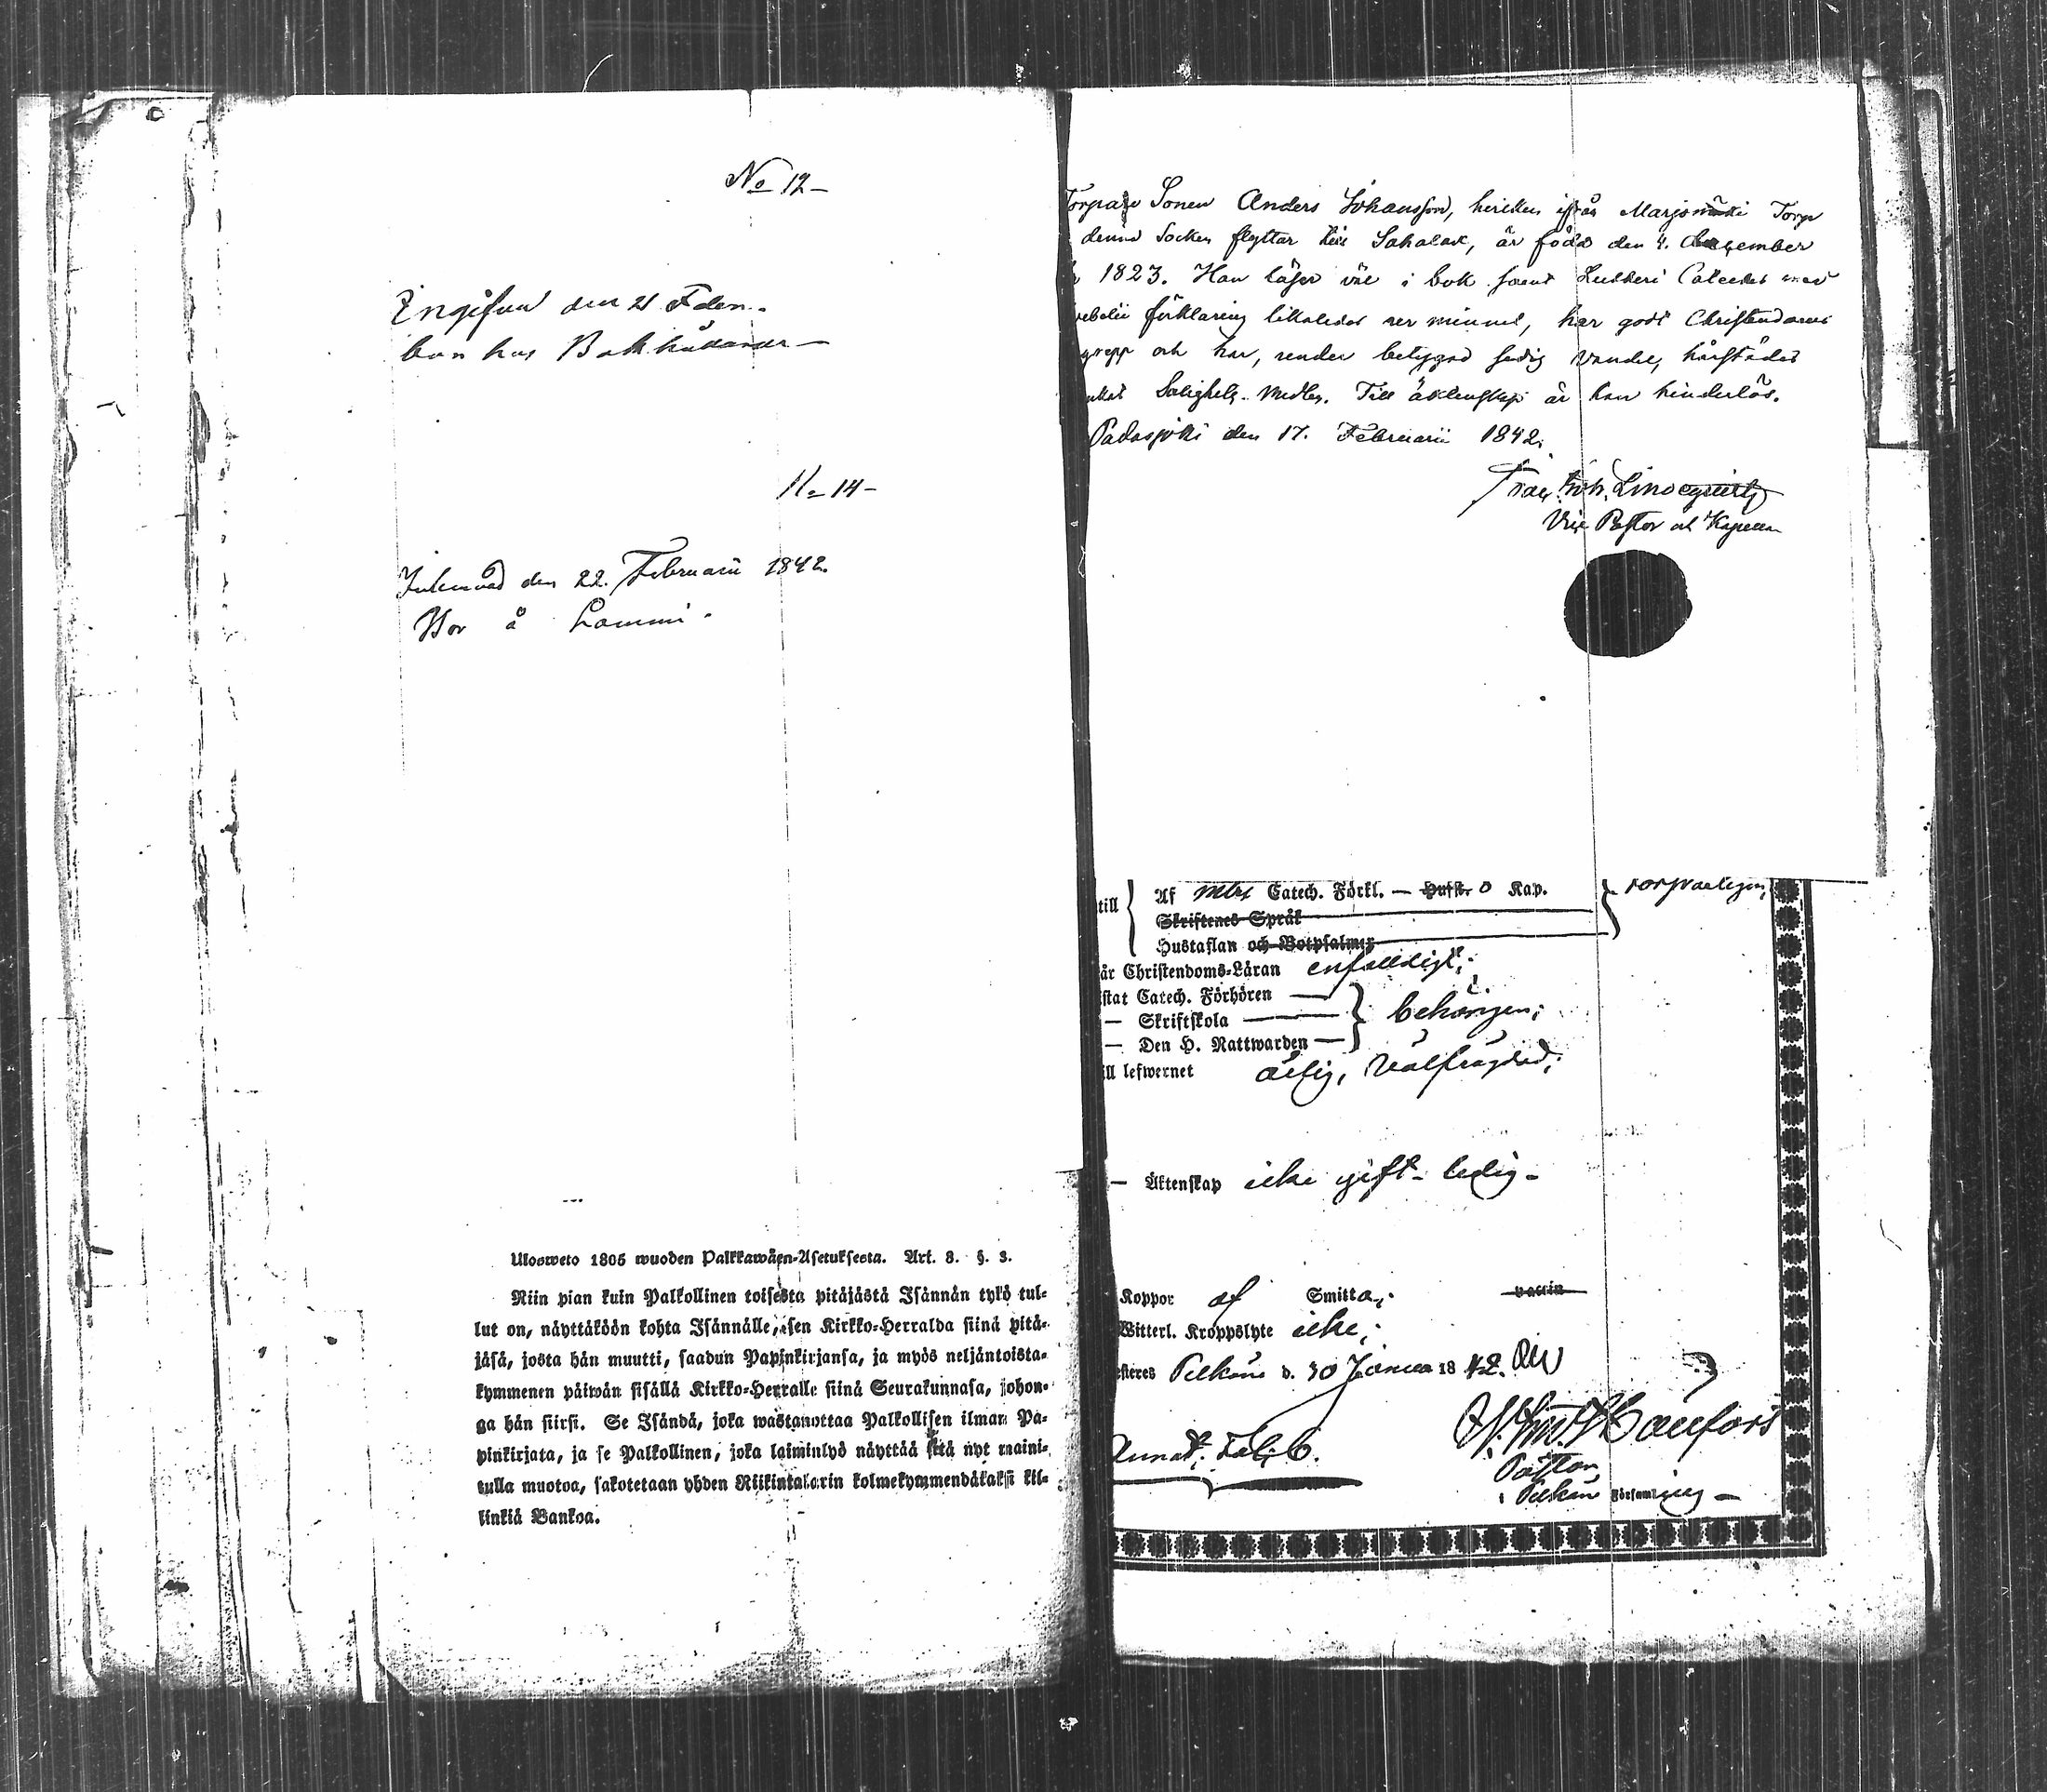 No 12-
den 21
hos Bokhållaren -
No 14-
Inlemnad den 22. Februarii 1842.
Bor å Lammi.
Ulosweto 1805 wuoden Palkkawäen-Asetuksesta. Art. 8. §. 3.
Niin pian kuin Palkollinen toisesta pitäjästä Isännän tykö tul-
lut on, näyttäköön kohta Isännälle, sen Kirkko-Herralda siinä pitä-
jäsä, josta hän muutti, saadun Papinkirjansa, ja myös neljäntoista-
kymmenen päiwän sisällä Kirkko-Herralle siinä Seurakunnasa, johon-
ga hän siirsi. Se Isändä, joka wastanottaa Palkollisen ilman Pa-
pinkirjata, ja se Palkollinen, joka laiminlyö näyttää sitä nyt maini-
tulla muotoa, sakotetaan yhden Riikintalarin kolmekymmendäkaksi kil-
linkiä Bankoa.
Torpare Sonen Anders Johansson, hvilken ifrån Marjomäki Torp
denna Socken flyttar till Sahalax, är född den 4. December
1823. Han läser väl i bok samt Lutheri Cateches med
förklaring likaledes ur minnet, har godt Christendoms
grepp och har, under betygad sedig vandel, härstädes
Salighets-Medlen. Till äktenskap är han hinderlös.
Padasjoki den 17. Februarii 1842.
Joh. Lindeqvist
Vice Pastor och Kapellan
till Af Catech. Förkl. - Hufst. o Kap. försvarligen;
Skriftenes Språk
Hustaflan och Botpsalmer
Christendoms-Läran enfaldigt;
Catech. Förhören
- Skriftskola behörigen;
- Den H. Nattwarden
lefwernet ärlig, välfrägdad;
- Äktenskap icke gift - ledig -
Koppor af Smitta; vaccin
Witterl. Kroppslyte icke;
Pelkäne d. 30 Januar 1842.
Pastor
i Pelkäne Församling -